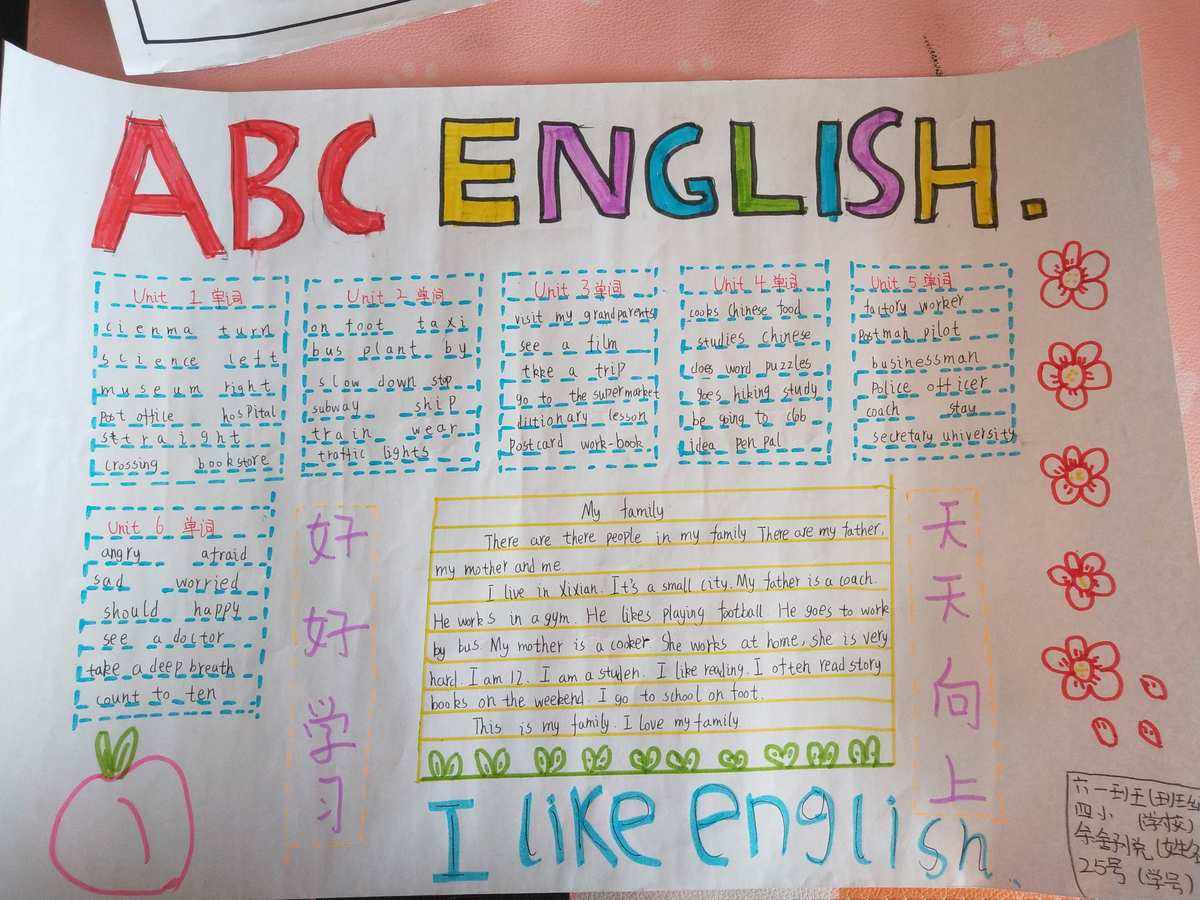 ABC ENGLISH.
Unit 1 单词
cienma turn
science left
museum right
Post office hospital
sttraight
crossing bookstore
Unit 2 单词
on foot taxi
bus plant by
slow down stop
subway ship
train wear
traffic lights
Unit 3 单词
visit my grandparents
see a film
tkke a trip
go to the supermarket
diltionary lesson
Postcard work-book
Unit 4 单词
cooks Chinese food
studies chinese
does word puzzles
goes hiking study
be going to clob
idea pen pal
Unit 5 单词
factory worker
Postman pilot
businessman
Police officer
coach stay
secretary university
Unit 6 单词
angry afraid
sad worried
should happy
see a doctor
take a deep breath
count to ten
好好学习
My family
There are there people in my family There are my father,
my mother and me.
I live in Xixian. It's a small city. My father is a coach.
He works in a gym. He likes playing football. He goes to work
by bus. My mother is a cooker She works at home, she is very
hard. I am 12. I am a studen. I like reading. I often read story
books on the weekend. I go to school on foot.
This is my family. I love my family
天天向上
I like english
六一班王(班级
四小 (学校)
(姓名
25号 (学号)